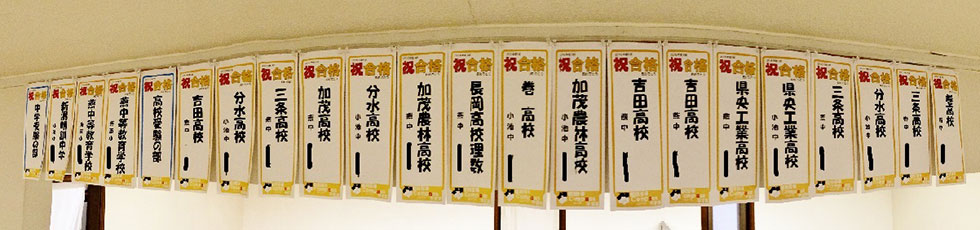 祝合格
中学受験の部
祝合格
新潟明訓中学
小池小
祝合格
燕中等教育学校
祝合格
燕中等教育学校
祝合格
高校受験の部
祝合格
吉田高校
燕中
祝合格
分水高校
小池中
祝合格
三条高校
燕中
祝合格
加茂高校
燕中
祝合格
分水高校
小池中
祝合格
加茂農林高校
燕中
祝合格
長岡高校理数
燕中
祝合格
巻高校
小池中
祝合格
加茂農林高校
小池中
祝合格
吉田高校
燕中
祝合格
吉田高校
燕中
祝合格
県央工業高校
燕中
祝合格
県央工業高校
小池中
祝合格
三条高校
小池中
祝合格
分水高校
小池中
祝合格
三条高校
燕中
祝合格
巻高校
燕中